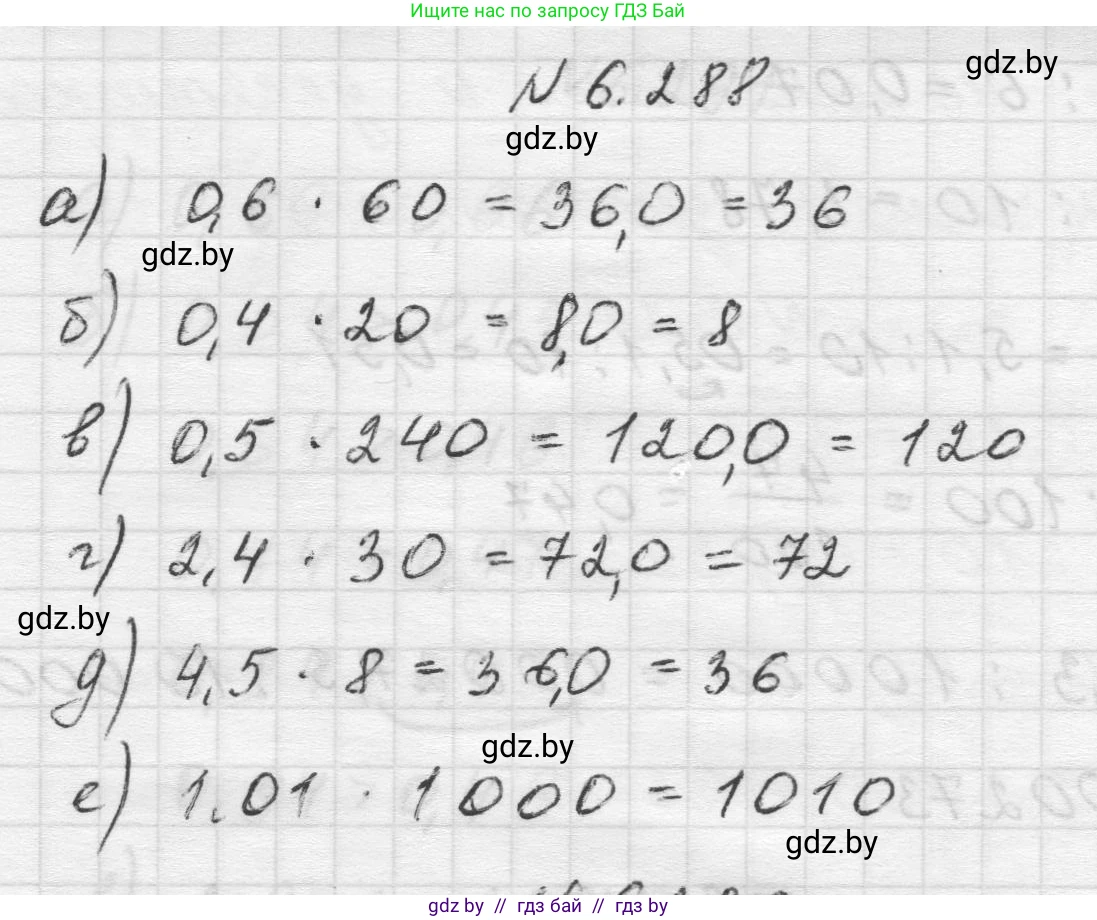 Ищите нас по запросу ГДЗ Бай
N 6.288
gdz.by
gdz.by
а) 0,6 · 60 = 36,0 = 36
gdz.by
б) 0,4 · 20 = 8,0 = 8
в) 0,5 · 240 = 120,0 = 120
г) 2,4 · 30 = 72,0 = 72
gdz.by
д) 4,5 · 8 = 36,0 = 36
gdz.by
е) 1,01 · 1000 = 1010
gdz.by
gdz.by // гдз бай // гдз by